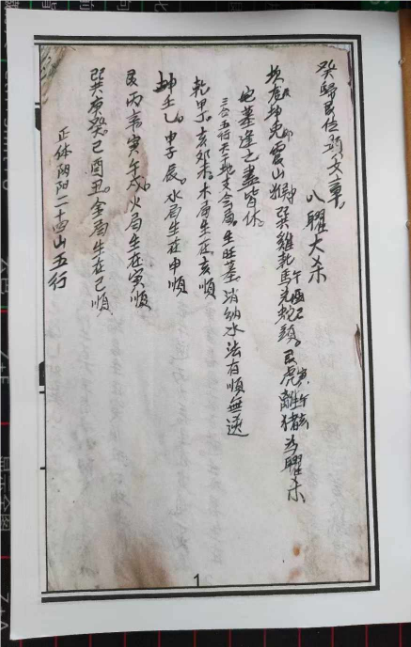 癸歸艮位發文章
八曜大杀
坎龙坤兔震山猴巽雞乾馬兑蛇頭艮虎離猪为曜杀
墓逢之盡皆休
三合五行天干地支会局生旺墓消纳水法有順無逆
乾甲丁。亥卯未。木局生在亥順
坤壬乙。申子辰。水局生在申順
艮丙辛寅午戌火局生在寅順
巽庚癸巳酉丑。金局生在巳順
正体阴阳二十四山五行
1